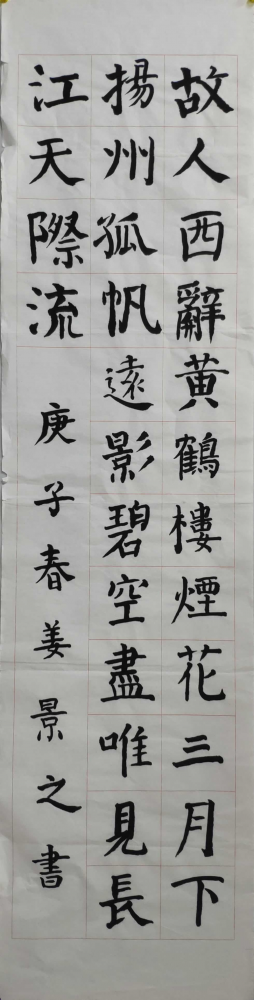 故人西辭黄鶴樓煙花三月下
揚州孤帆遠影碧空盡唯見長
江天際流
庚子春姜景之書